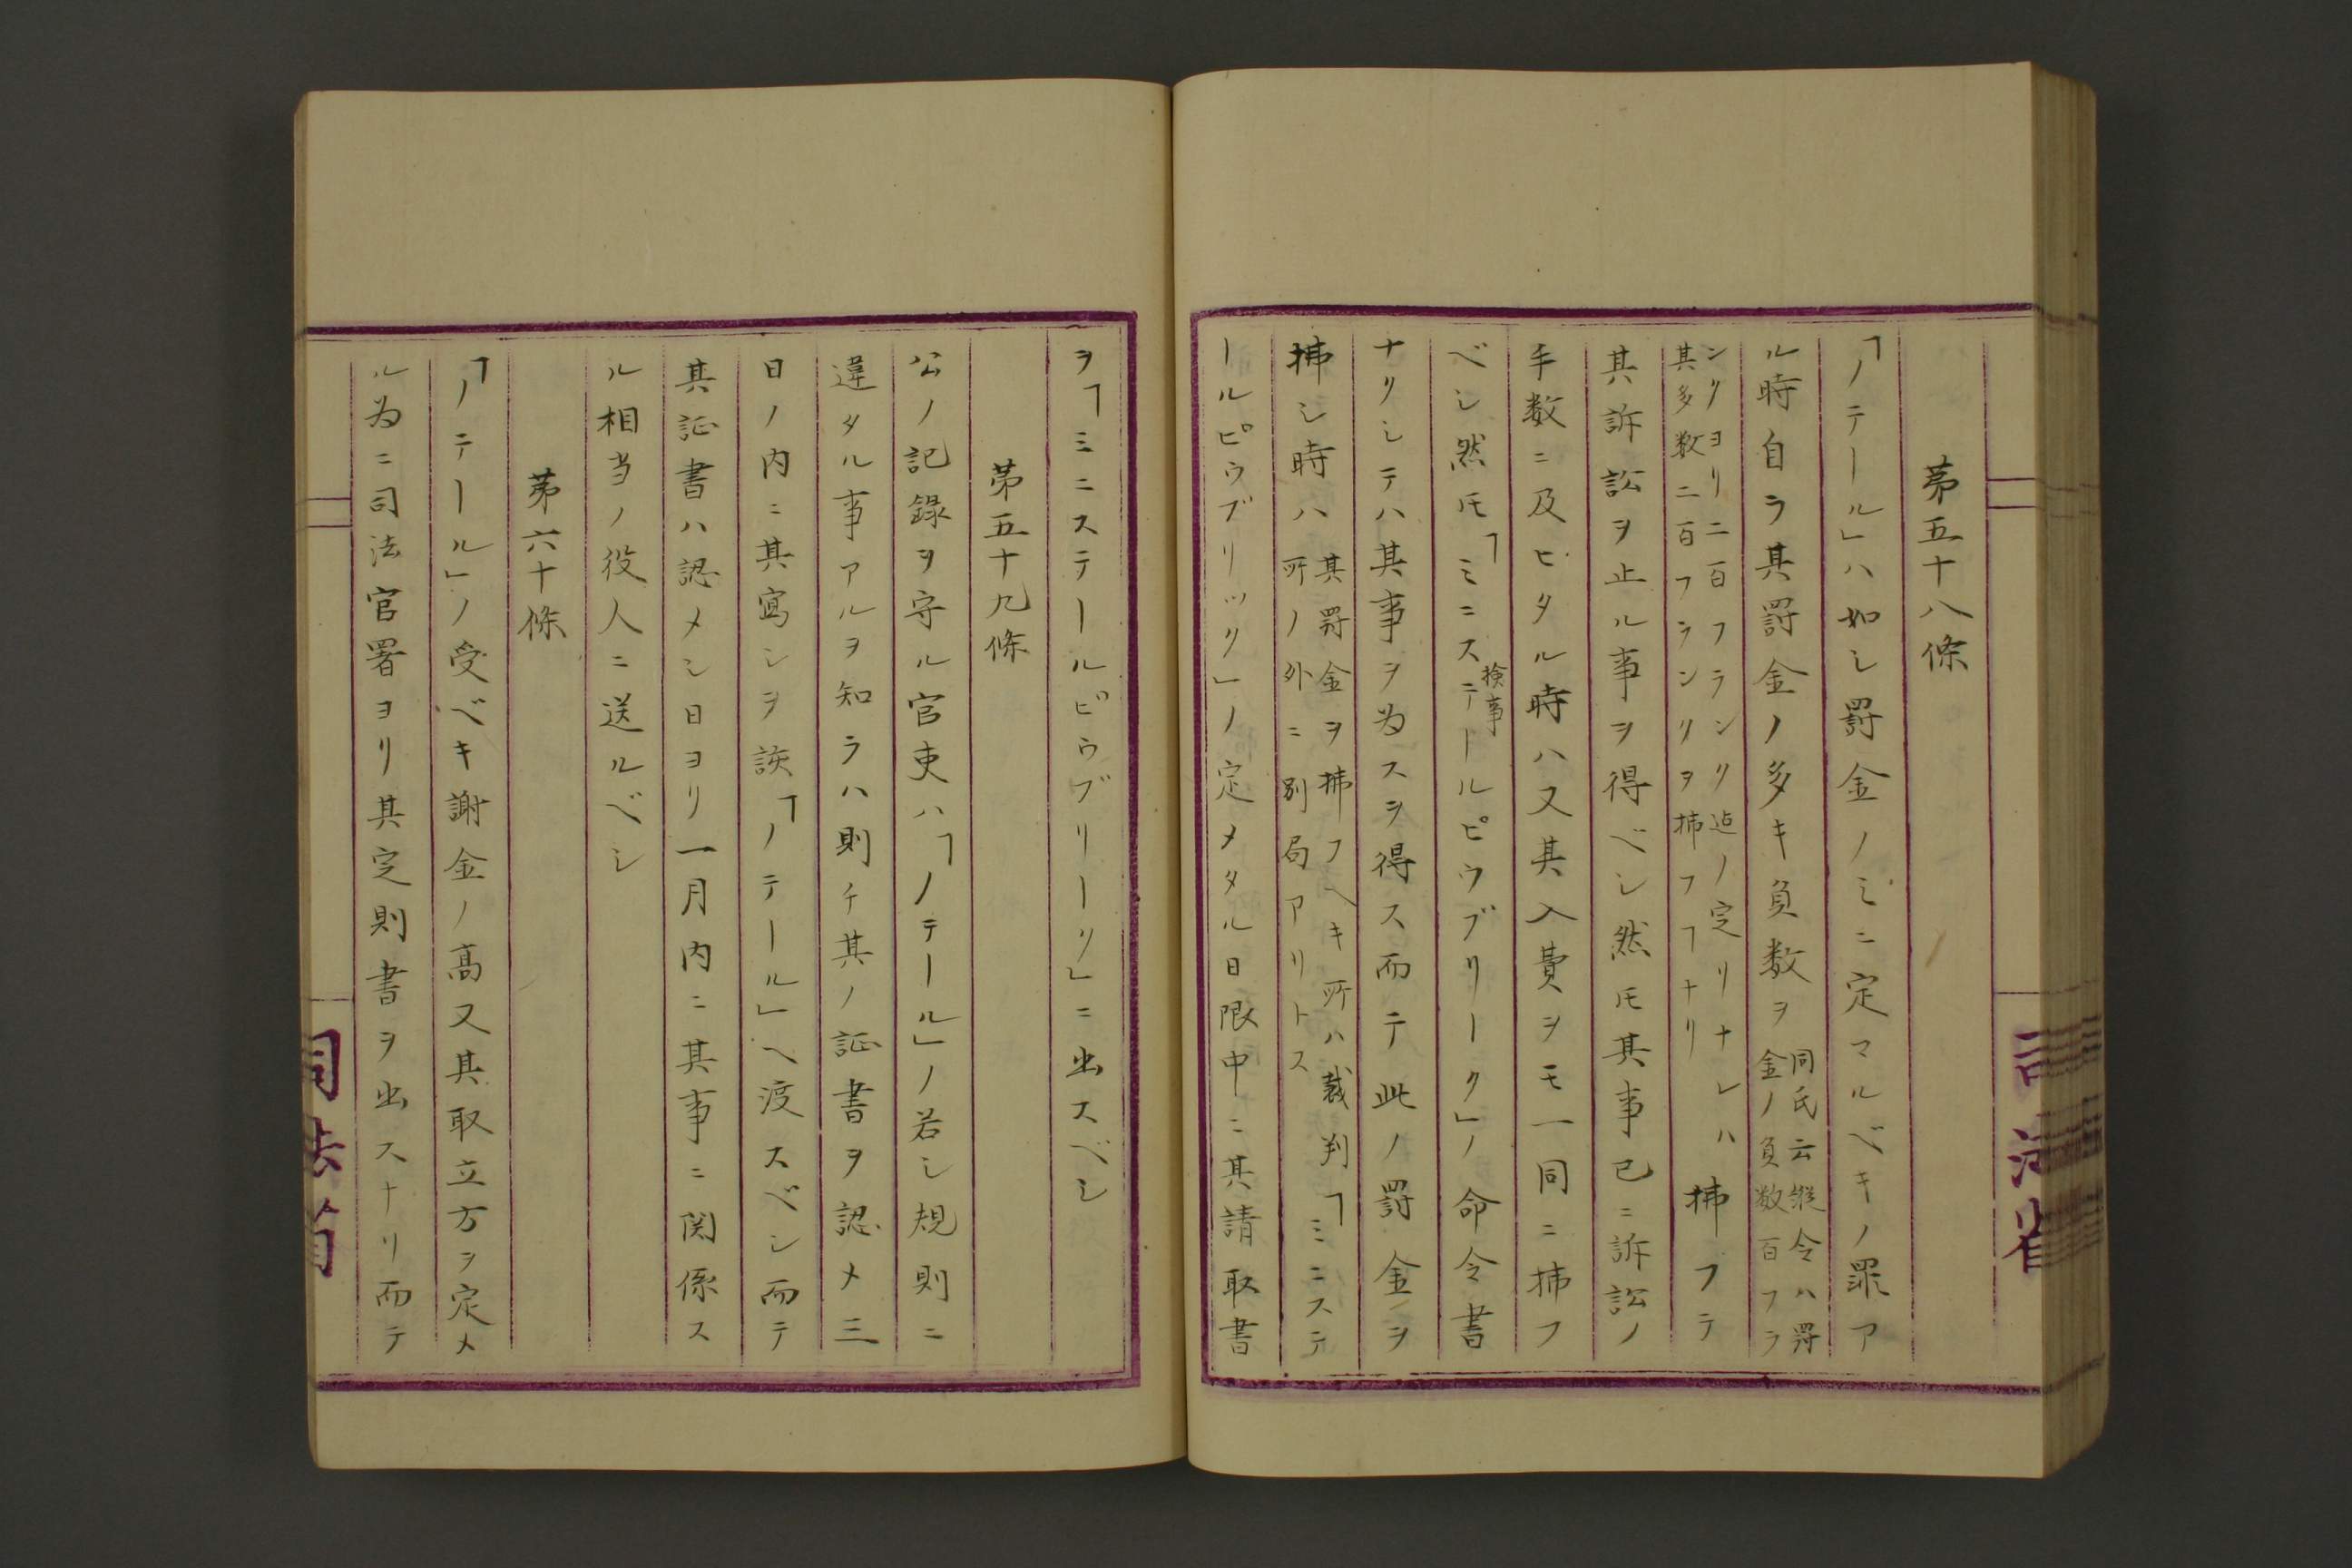 第五十八條
「ノテール」ハ如シ罸金ノミニ定マルベキノ罪ア
ル時自ラ其罸金ノ多キ負数ヲ
同氏云縦令ハ罸
金ノ負数百フラ
ンクヨリ二百フランク迠ノ定リナレハ
其多数二百フランクヲ拂フ「ナリ
拂フテ
其訴訟ヲ止ル事ヲ得ベシ然𪜈其事已ニ訴訟ノ
手数ニ及ビタル時ハ又其入費ヲモ一同ニ拂フ
ベシ然𪜈「ミニステールピウブリーク」ノ命令書
検事
ナクシテハ其事ヲ為スヲ得ス而テ此ノ罸金ヲ
拂シ時ハ
其罸金ヲ拂フヘキ所ハ裁判
所ノ外ニ別局アリトス
「ミニステ
ールピウブリック」ノ定メタル日限中ニ其請取書
ヲ「ミニステールピウブリーク」ニ出スベシ
第五十九條
公ノ記録ヲ守ル官吏ハ「ノテール」ノ若シ規則ニ
違タル事アルヲ知ラハ則チ其ノ証書ヲ認メ三
日ノ内ニ其寫シヲ該「ノテール」ヘ渡スベシ而テ
其証書ハ認メシ日ヨリ一月内ニ其事ニ関係ス
ル相当ノ役人ニ送ルベシ
第六十條
「ノテール」ノ受ベキ謝金ノ髙又其取立方ヲ定メ
ル為ニ司法官署ヨリ其定則書ヲ出スナリ而テ
司法省
司法省